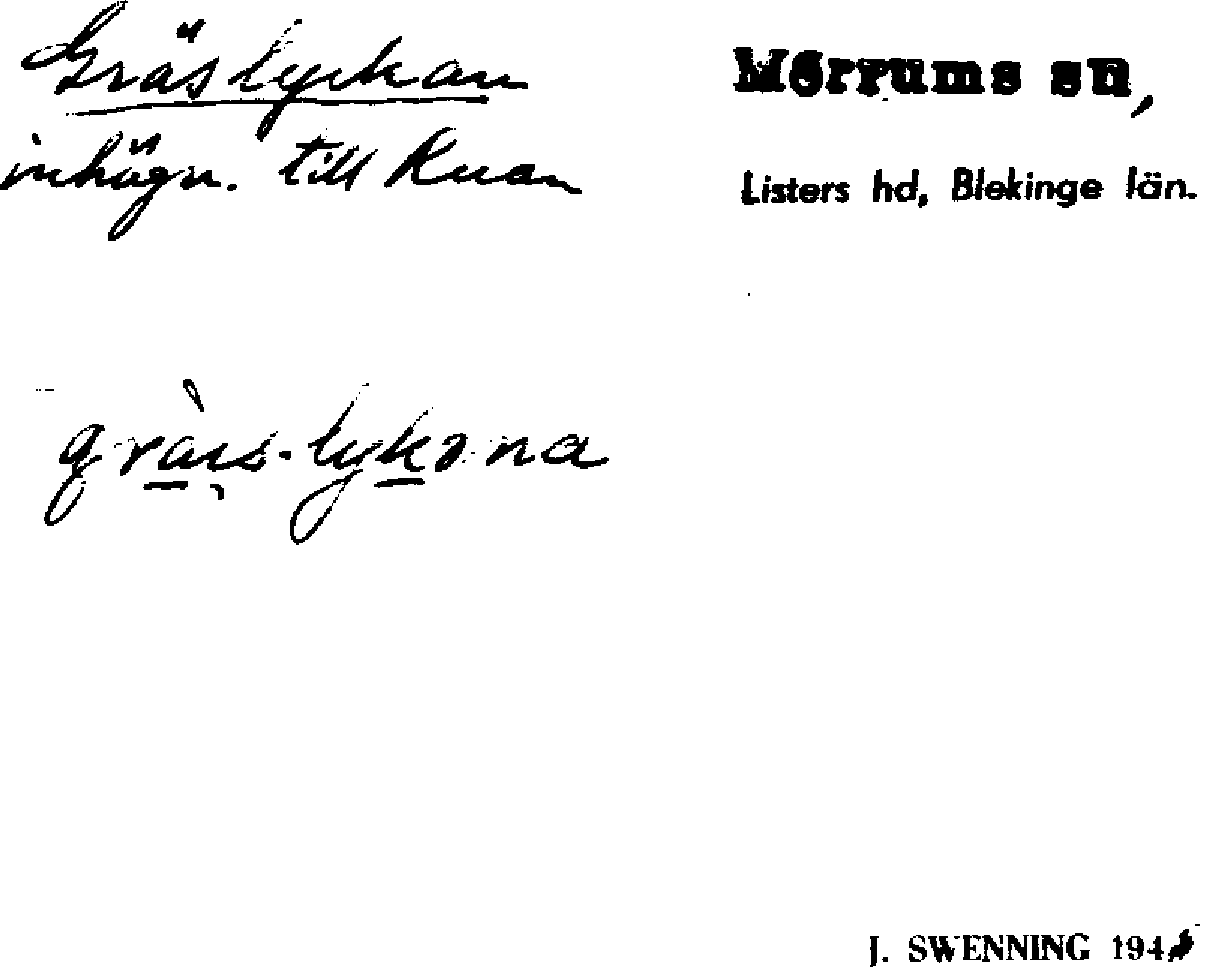 Gräslyckan
inhägn. till Ruan
Mörrums sn,
Listers hd, Blekinge län.
J. SWENNING 194